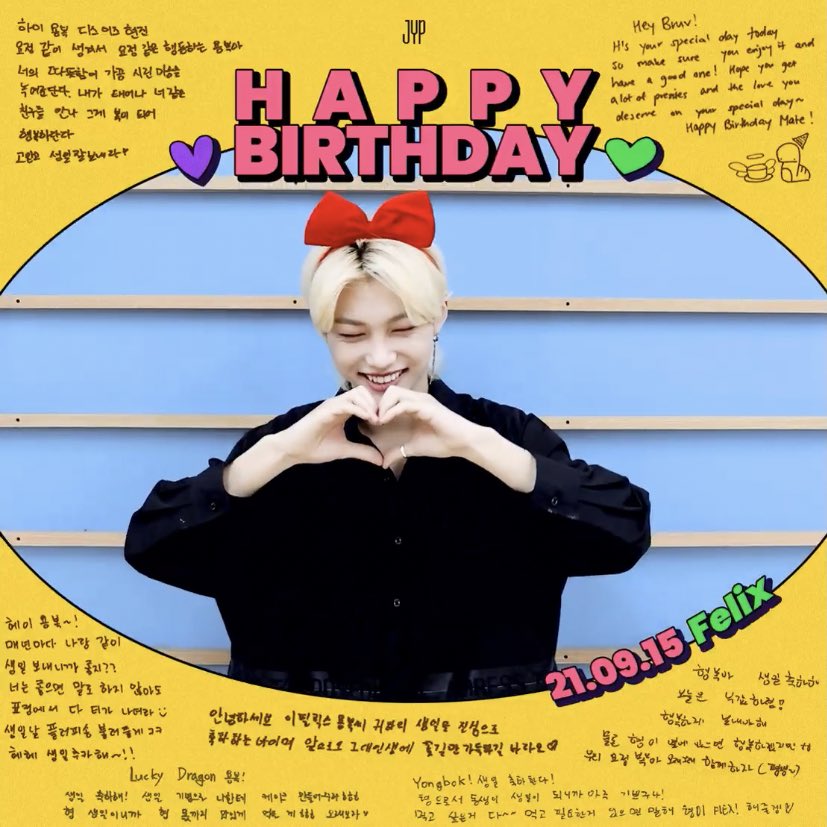 JYP
HAPPY
BIRTHDAY
하이 용복 디스 이즈 현진
요정 같이 생겨서 요정 같은 행동하는 용복아
너의 따뜻함이 가끔 시린 마음을
녹여준단다. 내가 태어나 너같은
친구를 만나 그게 복이 되어
행복하단다
고맙고 생일 잘 보내라♡
Hey Bruv!
It's your special day today
so make sure you enjoy it and
have a good one! Hope you get
a lot of prezzies and the love you
deserve on your special day~
Happy Birthday Mate!
21.09.15 Felix
헤이 용복~!
매년마다 나랑 같이
생일 보내니까 좋지??
너는 좋으면 말로 하지 않아도
표정에서 다 티가 나더라
생일날 플러피송 불러줄게 ㅋㅋ
헤헤 생일추카해~!!
안녕하세요 이필릭스 용복씨 귀하의 생일을 진심으로
축하하는 바이며 앞으로도 그대 인생에 꽃길만 가득하길 바라오
Lucky Dragon 용복!
생일 축하해! 생일 기념으로 나한테 케이크 만들어주라
형 생일이니까 형 몫까지 맛있게 먹을게
용복아 생일 축하해
늘 행복하렴!
행복하게 보내야해
물론 형이 옆에 있으면 행복하겠지만
우리 요정 복아 오래오래 함께하자 (평생~)
Yongbok! 생일 축하한다!
형으로서 동생이 생일이 되니까 아주 기쁘구나!
먹고 싶은거 다~~ 먹고 필요한거 있으면 말해 형이 FLEX! 해줄게